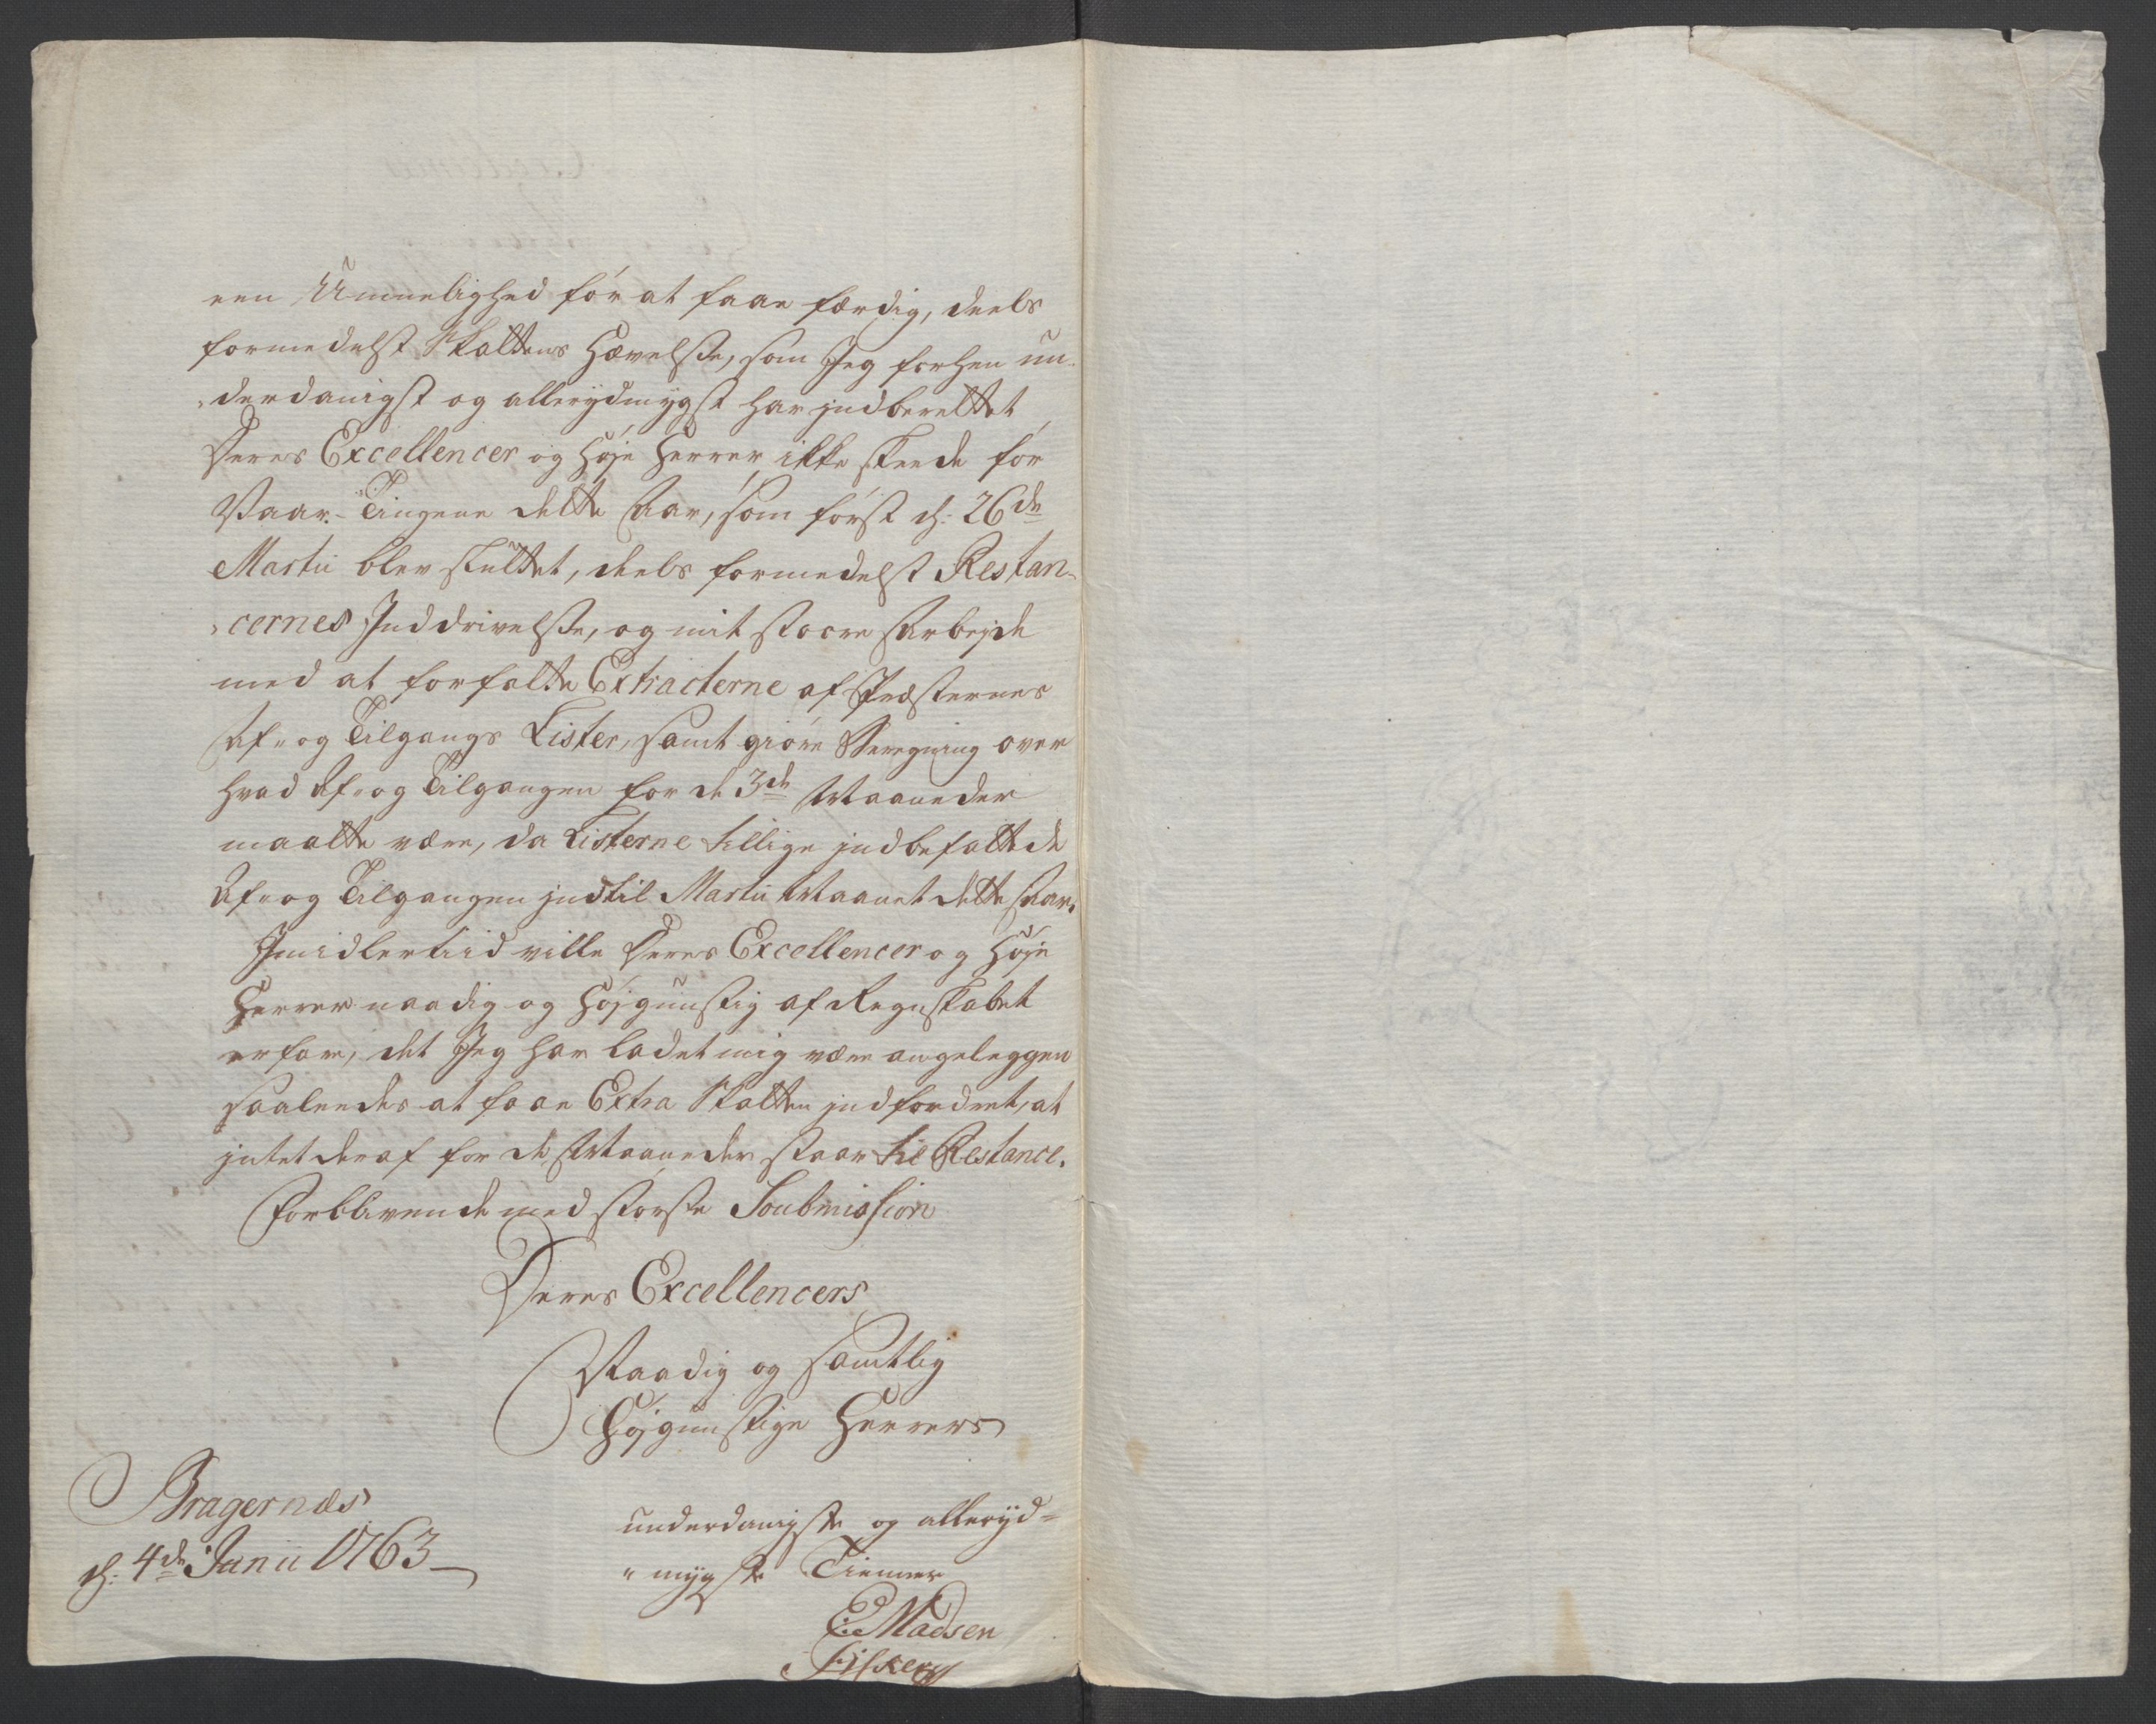 een Umuelighed for at faae færdig, deels
formedelst Skattens Hævelse, som Jeg forhen un-
derdanigst og allerydmygst har indberettet
Deres Excellencer og Høje Herrer, ikke skeede før
Vaar-Tingene dette Aar, som først d: 26de
Martii blev sluttet, deels formedelst Restan-
cernes Inddrivelse, og mit stoere Arbejde
med at forfatte Extracterne af Præsternes
Af- og Tilgangs Lister, samt giøre Beregning over
hvad Af- og Tilgangen for de 3de Maaneder
maatte være, da Listerne tillige indbefattede
Af- og Tilgangen indtil Martii Maanet dette Aar.
Imidlertiid ville Deres Excellencer og Høje
Herrer naadig og Højgunstig af Regnskabet
erfare, det Jeg har ladet mig være angeleggen
saaleedes at faae Extra Skatten indfordret, at
intet deraf for de Maaneder staar til Restance.
Forblivende med største Soubmission
Deres Excellencers
Naadig og samtlig
Højgunstige Herrers
Bragernæs
d: 4de Junii 1763
underdanigste og alleryd-
mygste Tienner
E: Madsen
Fisker